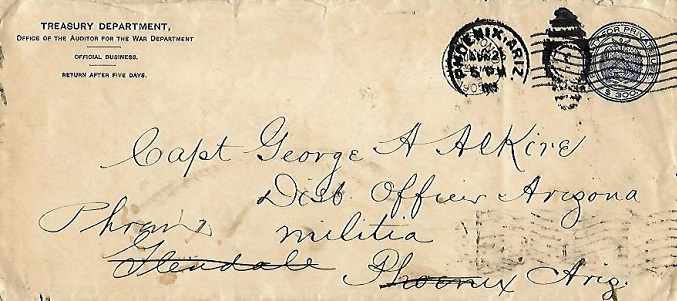 TREASURY DEPARTMENT,
OFFICE OF THE AUDITOR FOR THE WAR DEPARTMENT
OFFICIAL BUSINESS.
RETURN AFTER FIVE DAYS.
PHOENIX, ARIZ
FOR PRIVATE USE
$300
Capt George A Alkire
Disb Officer Arizona
militia
Glendale Phoenix Ariz.